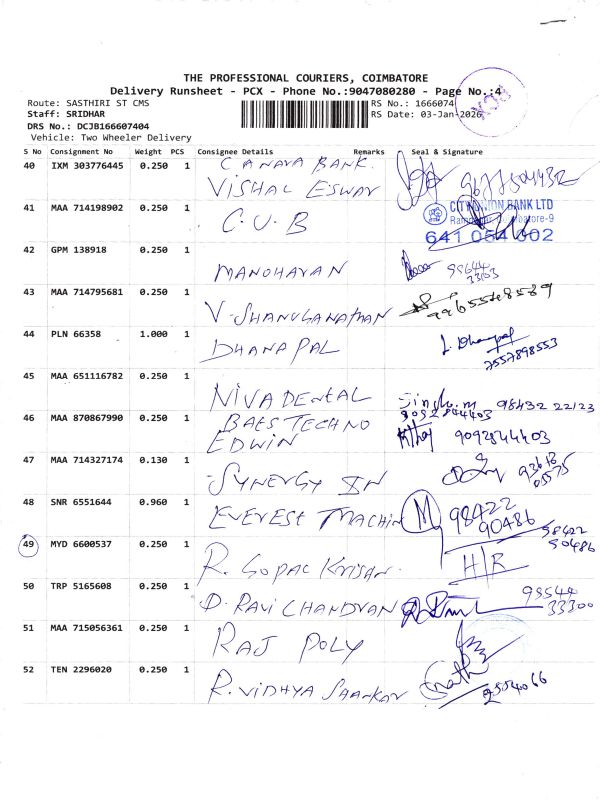 THE PROFESSIONAL COURIERS, COIMBATORE
Delivery Runsheet - PCX - Phone No.:9047080280 - Page No.:4
Route: SASTHIRI ST CMS RS No.: 1666074
Staff: SRIDHAR RS Date: 03-Jan-2026
DRS No.: DCJB166607404
Vehicle: Two Wheeler Delivery
PCX
S No Consignment No Weight PCS Consignee Details Remarks Seal & Signature
40 IXM 303776445 0.250 1 CANARA BANK.
VISHAL ESWAR
41 MAA 714198902 0.250 1 C.U.B CITY UNION BANK LTD
641 054 002
42 GPM 138918 0.250 1 MANOHARAN 98644
33103
43 MAA 714795681 0.250 1 V-SHANUGANATHAN 9965548589
44 PLN 66358 1.000 1 DHANAPAL L. Dhanapal
7557898553
45 MAA 651116782 0.250 1 NIVA DENTAL 98432 22123
9092844403
46 MAA 870867990 0.250 1 BAES TECHNO
EDWIN 9092844403
47 MAA 714327174 0.130 1 SYNERGY IN 93618
05575
48 SNR 6551644 0.960 1 EVEREST MACHIN M 98422
90486
98422
90486
49 MYD 6600537 0.250 1 R. GOPAL KRISAN. H/R
50 TRP 5165608 0.250 1 D. RAVI CHANDRAN 95544
33300
51 MAA 715056361 0.250 1 RAJ POLY
52 TEN 2296020 0.250 1 R. VIDHYA SHANKAR